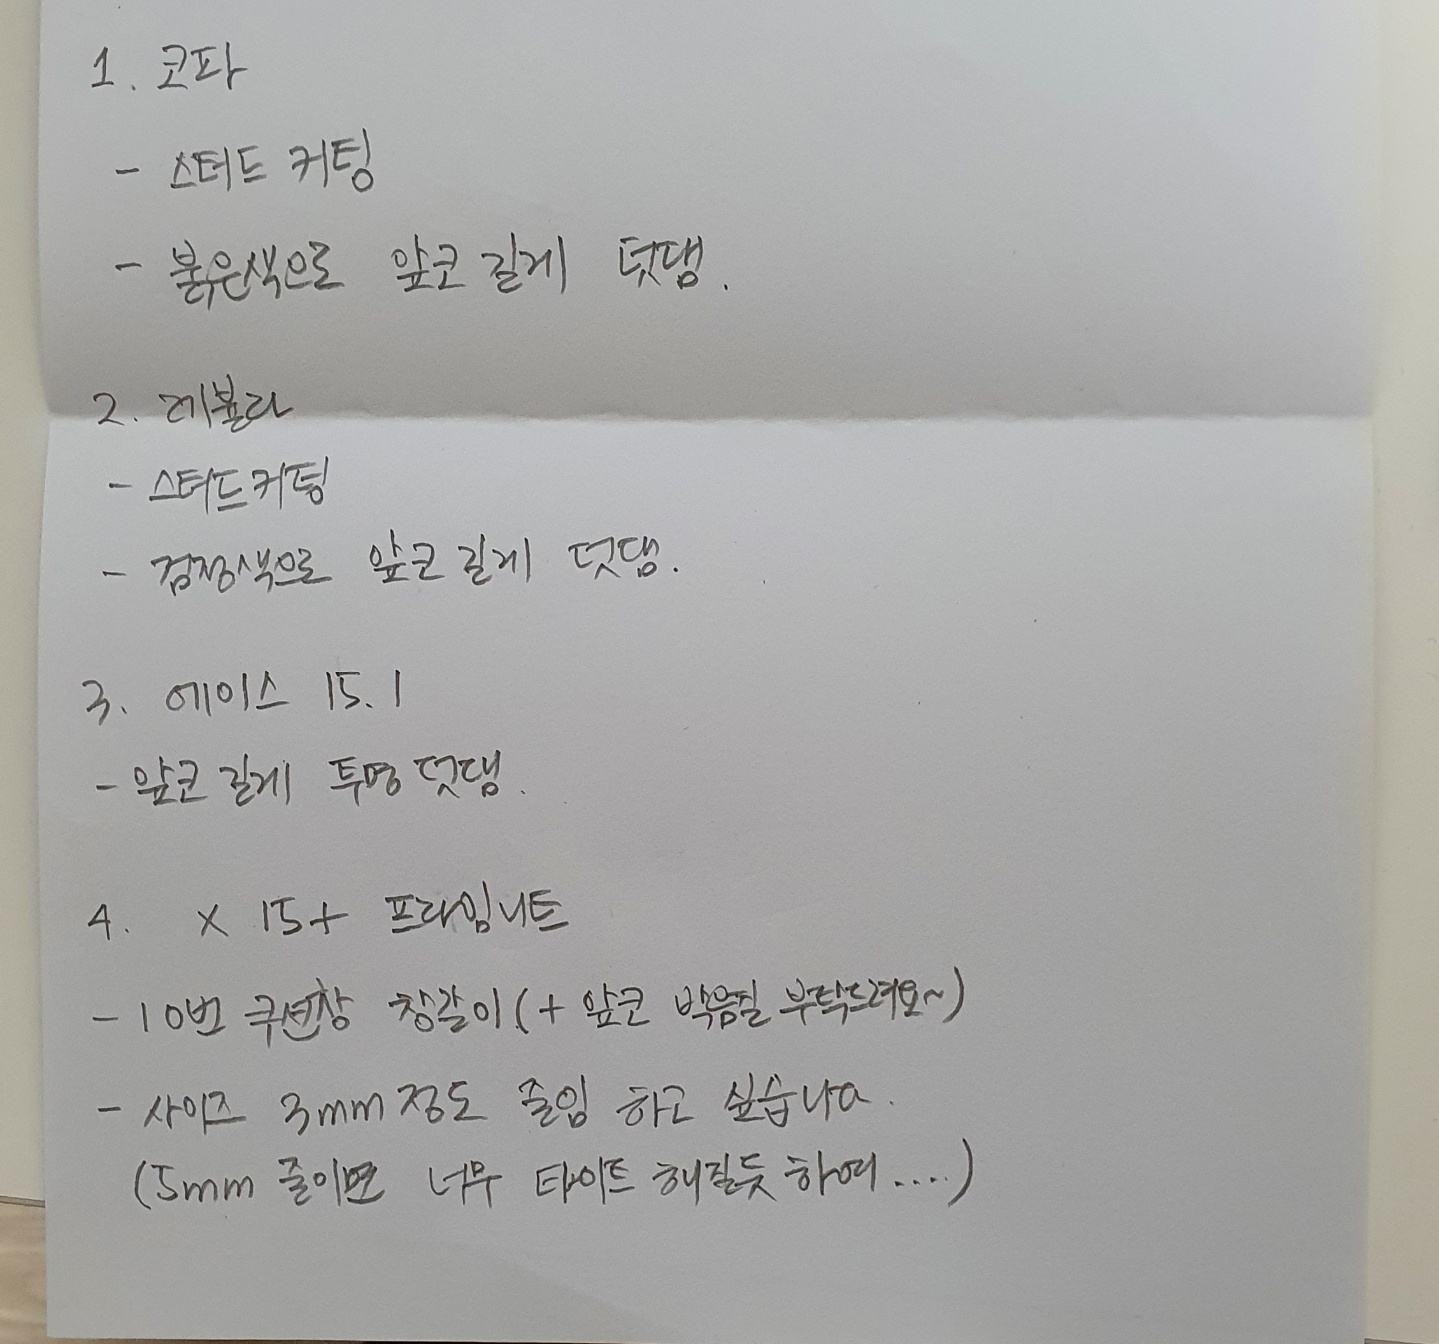 1. 코파
- 스터드 커팅
- 붉은색으로 앞코 길게 덧댐.
2. 레뷸라
- 스터드커팅
- 검정색으로 앞코 길게 덧댐.
3. 에이스 15.1
- 앞코 길게 투명 덧댐.
4. X 15+ 프라임니트
- 10번 쿠션창 창갈이 (+ 앞코 박음질 부탁드려요~)
- 사이즈 3mm 정도 줄임 하고 싶습니다.
(5mm 줄이면 너무 타이트 해질듯 하여....)